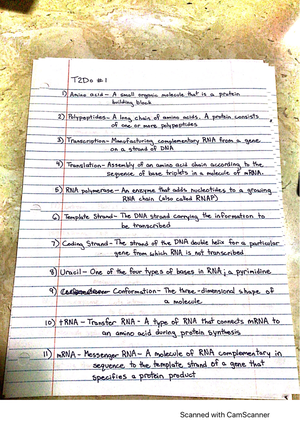 T2Do #1
1) Amino acid - A small organic molecule that is a protein
building block
2) Polypeptides - A long chain of amino acids. A protein consists
of one or more polypeptides
3) Transcription - Manufacturing complementary RNA from a gene
on a strand of DNA
4) Translation - Assembly of an amino acid chain according to the
sequence of base triplets in a molecule of mRNA.
5) RNA polymerase - An enzyme that adds nucleotides to a growing
RNA chain (also called RNAP)
6) Template Strand - The DNA strand carrying the information to
be transcribed
7) Coding Strand - The strand of the DNA double helix for a particular
gene from which RNA is not transcribed
8) Uracil - One of the four types of bases in RNA; a pyrimidine
9) Conformation - The three-dimensional shape of
a molecule
10) tRNA - Transfer RNA - A type of RNA that connects mRNA to
an amino acid during protein synthesis
11) mRNA - Messenger RNA - A molecule of RNA complementary in
sequence to the template strand of a gene that
specifies a protein product
Scanned with CamScanner